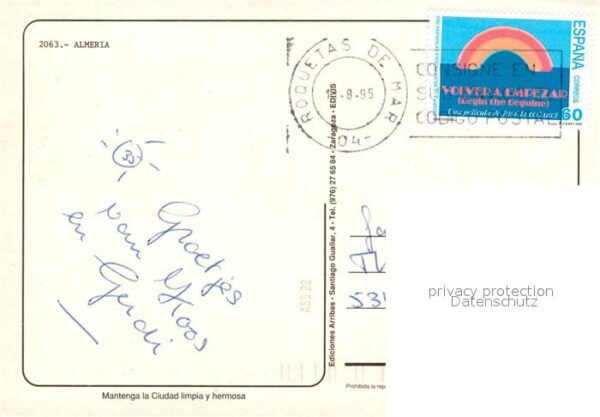 2063.- ALMERIA
33
Groetjes
van Koos
en Gerdi
Mantenga la Ciudad limpia y hermosa
Ediciones Arribas - Santiago Guallar, 4 - Tel. (976) 27 65 84 - Zaragoza - EDIVIS
A50 22
Prohibida la repr
ROQUETAS DE MAR
8-95
-04-
CONSIGNE EN
CODIGO POSTAL
ESPAÑA
CORREOS
VOLVER A EMPEZAR
(Begin the Beguine)
Una película de JOSE LUIS GARCI
60
534
privacy protection
Datenschutz